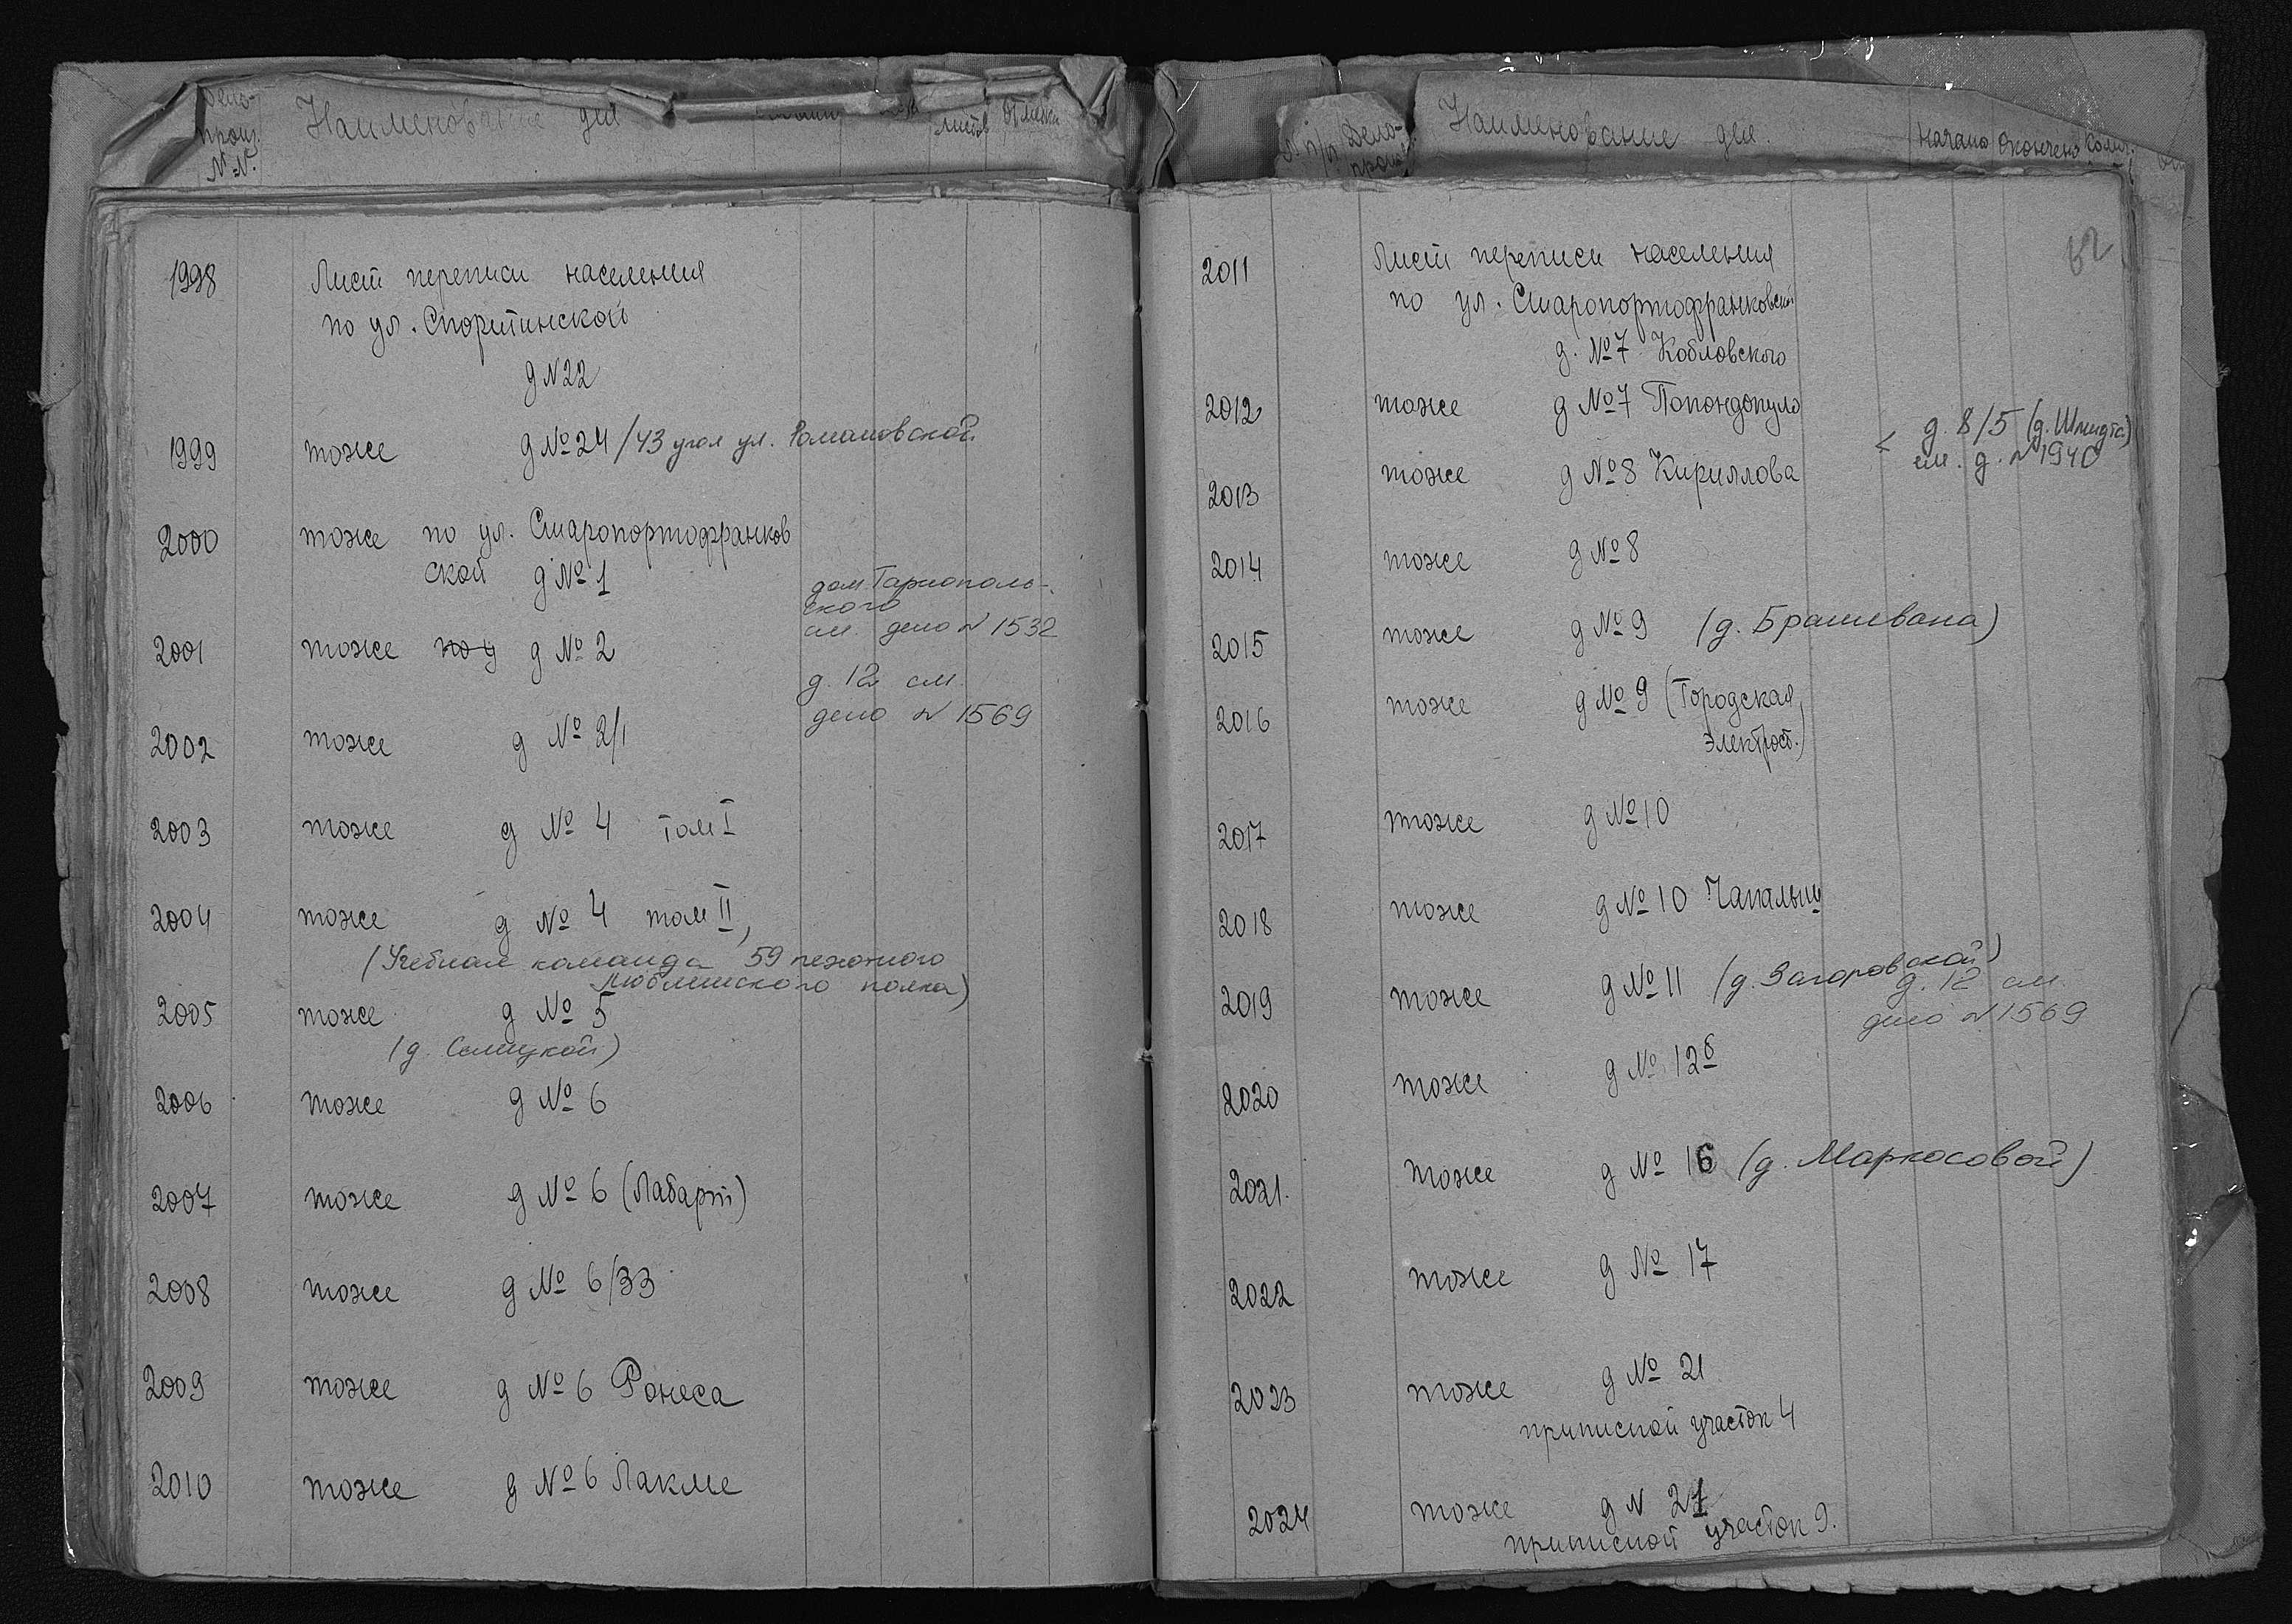 Дело-
произ.
N.N.
Наименование дел
листов
1998 Лист переписи населения
по ул. Спортинской
д N22
1999 тоже д №24/43 угол ул. Романовской
2000 тоже по ул. Старопортофранков
ской д №1
дом Тарнополь-
ского
см. дело N 1532
2001 тоже по у д №2
д. 12 см.
дело N 1569
2002 тоже д № 2/1
2003 тоже д № 4 том I
2004 тоже д № 4 том II,
(Учебная команда 59 пехотного
Люблинского полка)
2005 тоже д № 5
2006 тоже д № 6
2007 тоже д № 6 (Лабарт)
2008 тоже д № 6/33
2009 тоже д № 6 Ронеса
2010 тоже д № 6 Лакме
п/п Дело-
произ.
Наименование дел.
Начато Окончено Колич.
62
2011 Лист переписи населения
по ул. Старопортофранковской
д. №7 Кобловского
2012 тоже д №7 Попондопуло
< д. 8/5 (д. Шмидта)
см. д. N 1940
2013 тоже д №8 Кириллова
2014 тоже д №8
2015 тоже д №9 (д. Брашевана)
2016 тоже д №9 (Городская
электрост.)
2017 тоже д №10
2018 тоже д №10
2019 тоже д №11 (д. Загоровской)
д. 12 см.
дело N 1569
2020 тоже д № 12б
2021. тоже д № 16 (д. Маркосовой)
2022 тоже д № 17
2023 тоже д № 21
приписной участок 4
2024 тоже д N 21
приписной участок 9.